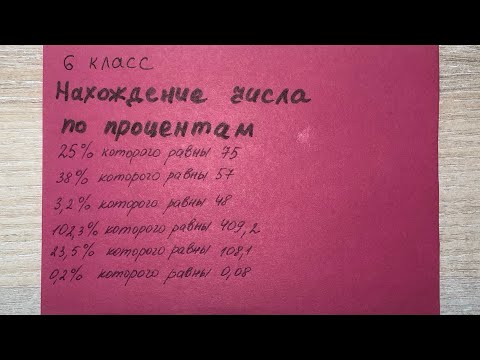 6 класс
Нахождение числа
по процентам
25% которого равны 75
38% которого равны 57
3,2% которого равны 48
102,3% которого равны 409,2
23,5% которого равны 108,1
0,2% которого равны 0,08